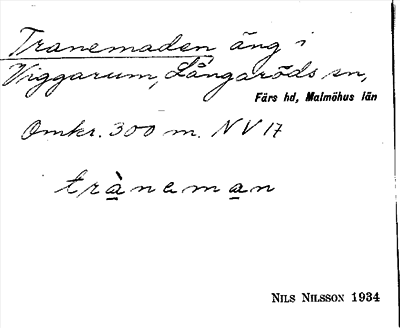 Tranemaden äng i
Viggarum, Långaröds sn,
Färs hd, Malmöhus län
Omkr. 300 m. NV 17
tràneman
NILS NILSSON 1934